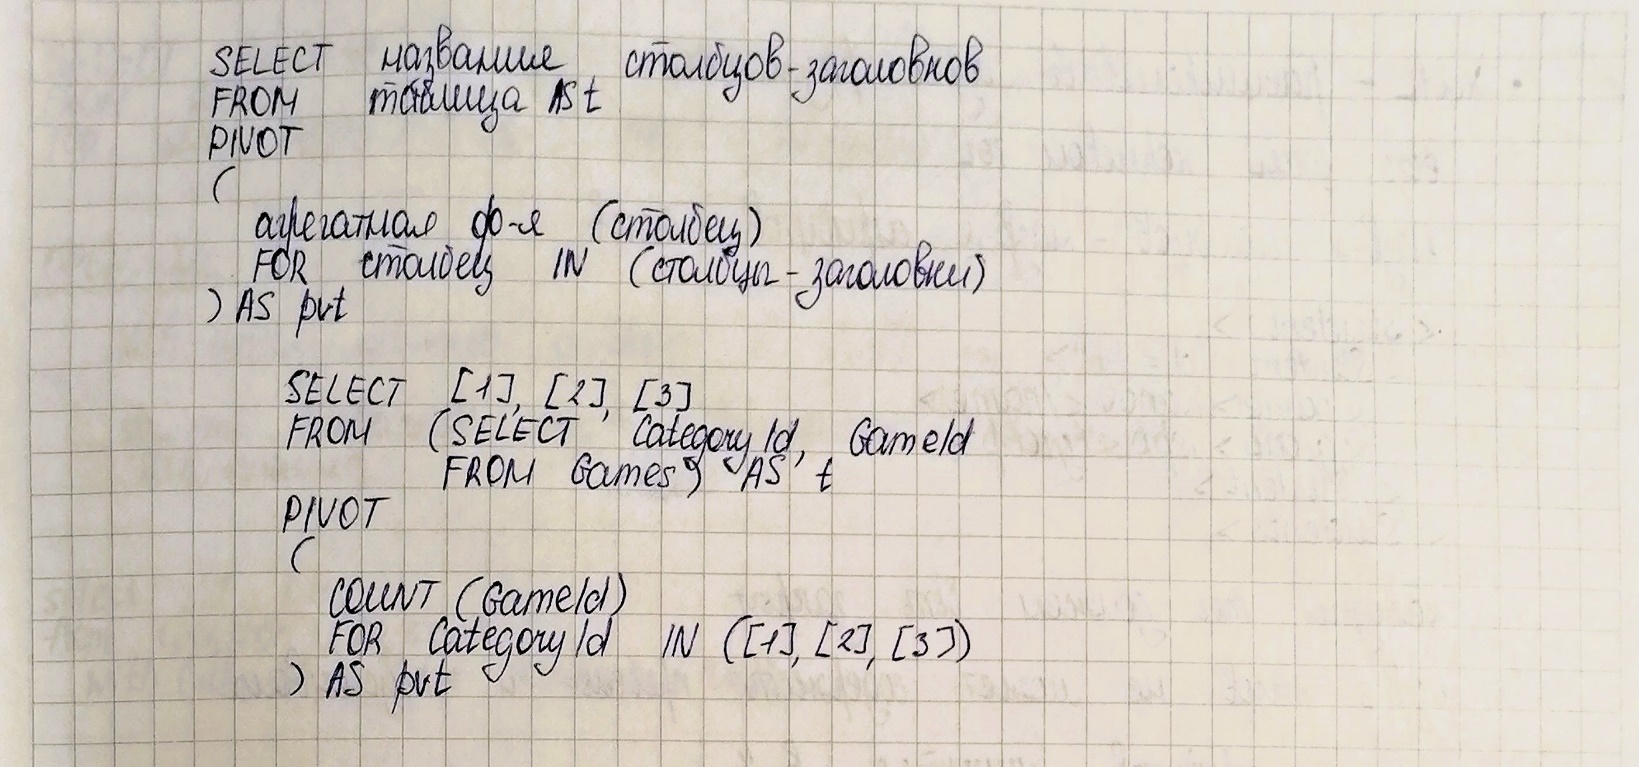 SELECT название столбцов-заголовков
FROM таблица AS t
PIVOT
(
агрегатная ф-я (столбец)
FOR столбец IN (столбцы-заголовки)
) AS pvt
SELECT [1], [2], [3]
FROM (SELECT CategoryId, GameId
FROM Games) AS t
PIVOT
(
COUNT (GameId)
FOR CategoryId IN ([1], [2], [3])
) AS pvt